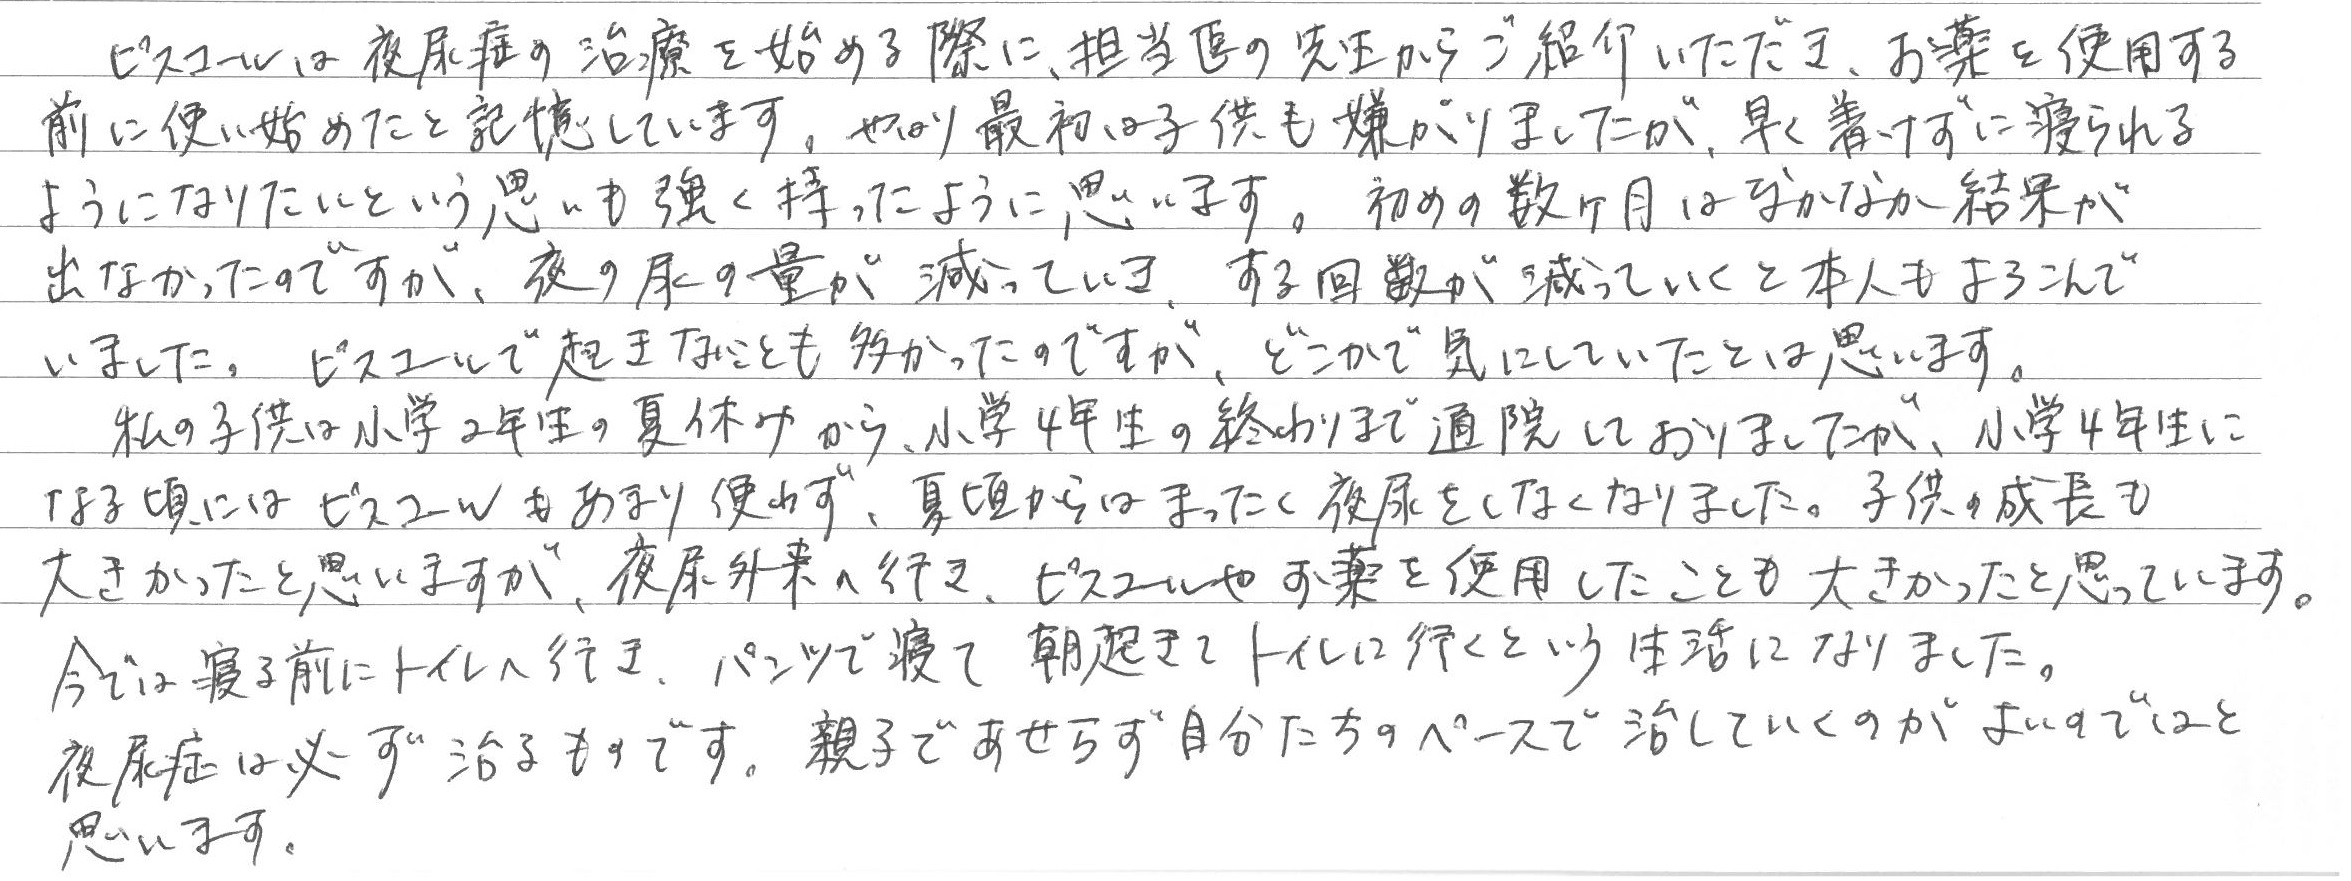 ピスコールは夜尿症の治療を始める際に、担当医の先生からご紹介いただき、お薬を使用する
前に使い始めたと記憶しています。やはり最初は子供も嫌がりましたが、早く着けずに寝られる
ようになりたいという思いも強く持ったように思います。初めの数ヶ月はなかなか結果が
出なかったのですが、夜の尿の量が減っていき、する回数が減っていくと本人もよろこんで
いました。ピスコールで起きないことも多かったのですが、どこかで気にしていたとは思います。
私の子供は小学2年生の夏休みから、小学4年生の終わりまで通院しておりましたが、小学4年生に
なる頃にはピスコールもあまり使わず、夏頃からはまったく夜尿をしなくなりました。子供の成長も
大きかったと思いますが、夜尿外来へ行き、ピスコールやお薬を使用したことも大きかったと思っています。
今では寝る前にトイレへ行き、パンツで寝て朝起きてトイレに行くという生活になりました。
夜尿症は必ず治るものです。親子であせらず自分たちのペースで治していくのがよいのではと
思います。